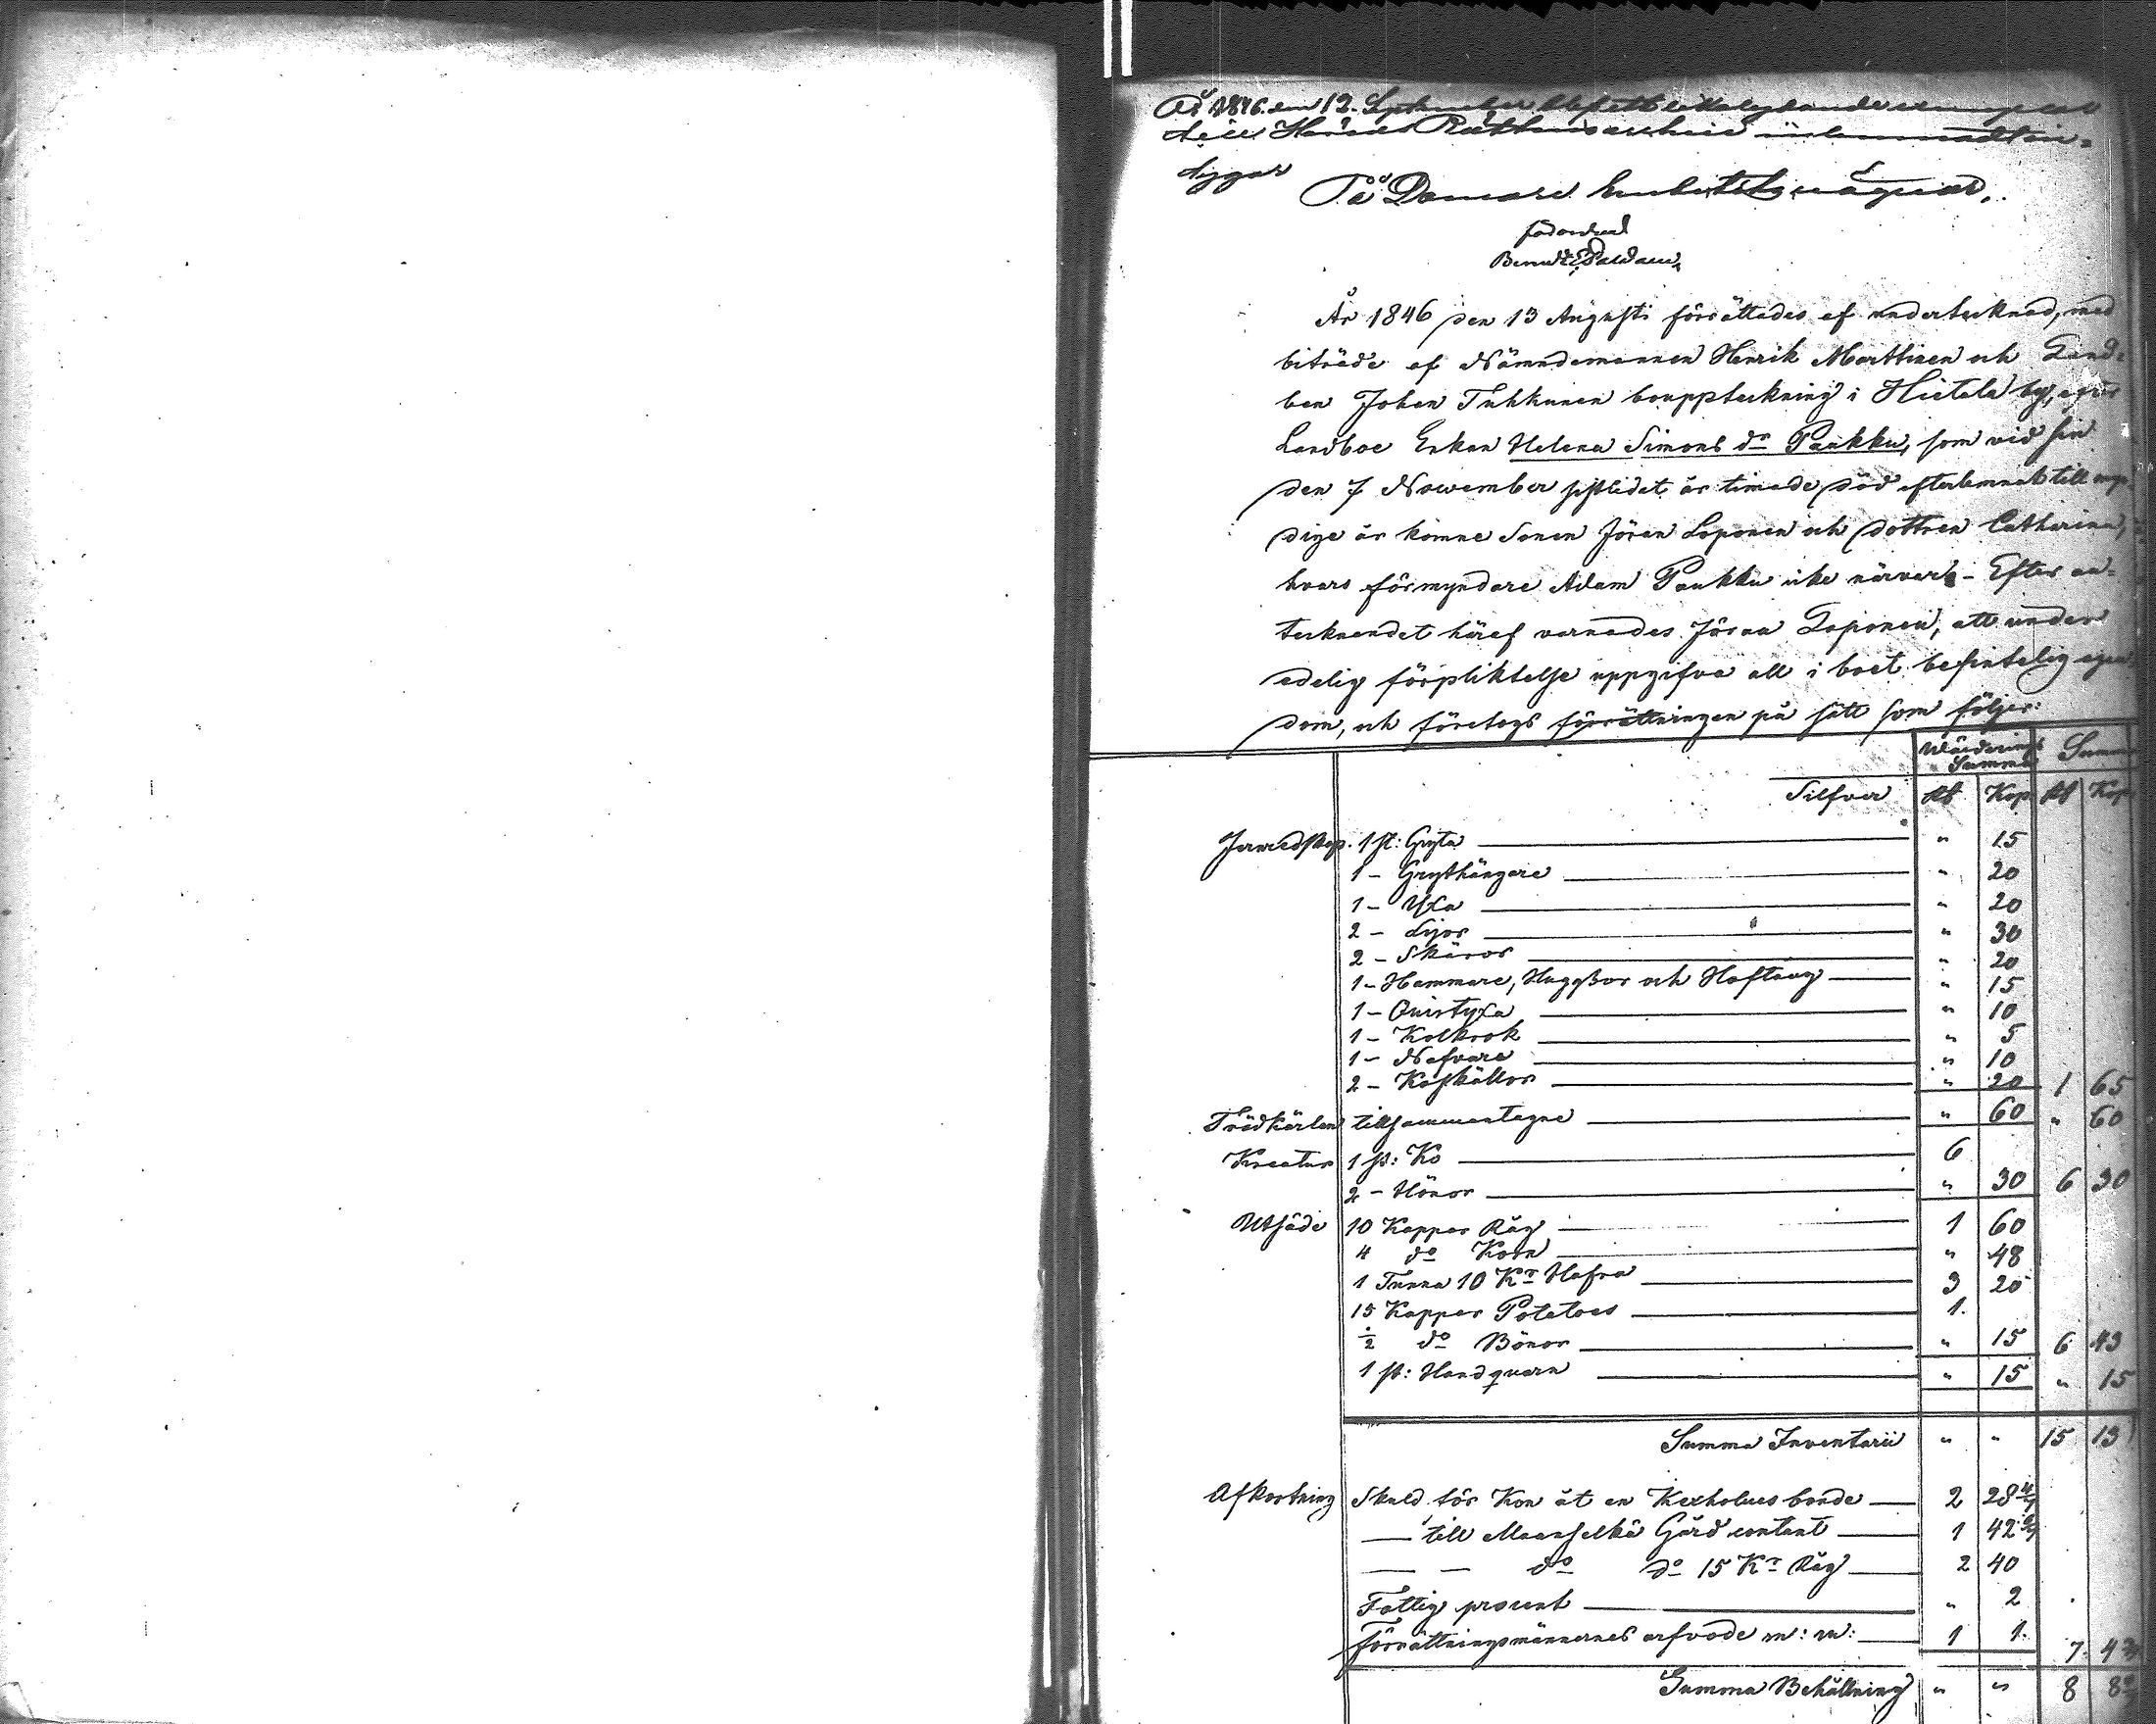 År 1846 den 12. September blef ett lika lydande exemplar
till Härads Rättens archiv inlemnadt, in-
tygar
På Domare Embetets vägnar,
förordnad
År 1846 den 13 Augusti förrättades af undertecknad, med
biträde af Nämndemannen Henrik Marttinen och Land-
bon Johan Tuhkunen bouppteckning i Hiitola by, efter
Landboe Enkan Helena Simons dr Paukku, som vid sin
den 7 November sistledit år timade död efterlemnat till myn-
dige år komne Sonen Jöran Loponen och dottren Catharina,
hvars förmyndare Adam Paukku icke närvar. - Efter an-
tecknandet häraf varnades Jöran Loponen, att under
edelig förpliktelse uppgifva all i boet befintelig egen-
dom, och företogs förrättningen på sätt som följer:
Wärderings Summa Summa
Silfver Rb Kop Rb Kop
Jernredskap. 1 st: Gryta " 15
1 - Grythängare " 20
1 - Yxa " 20
2 - Lijor " 30
2 - Skäror " 20
1 - Hammare, Huggbor och Hoftång " 15
1 - Qvistyxa " 10
1 - Kolkrok " 5
1 - Nafvare " 10
2 - Koskällor " 20 1 65
Trädkärlen tillsammantagne " 60 " 60
Kreatur 1 st: Ko 6
2 - Hönor " 30 6 30
Utsäde 10 Kappar Råg 1 60
4 do Korn " 48
1 Tunna 10 Kr Hafra 3 20
15 Kappar Potatoes 1.
½ do Bönor " 15 6 43
1 st: Handqvarn " 15 " 15
Summa Inventarii " " 15 13
Afkortning Skuld för Kon åt en Kexholms bonde 2 28 4/7
— till Maanselkä Gård contant 1 42 6/7
— — do do 15 Kr Råg 2 40
Fattig procent " 2
Förrättningsmännernes arfvode m: m: 1 1. 7. 4
Summa Behållning " " 8 8